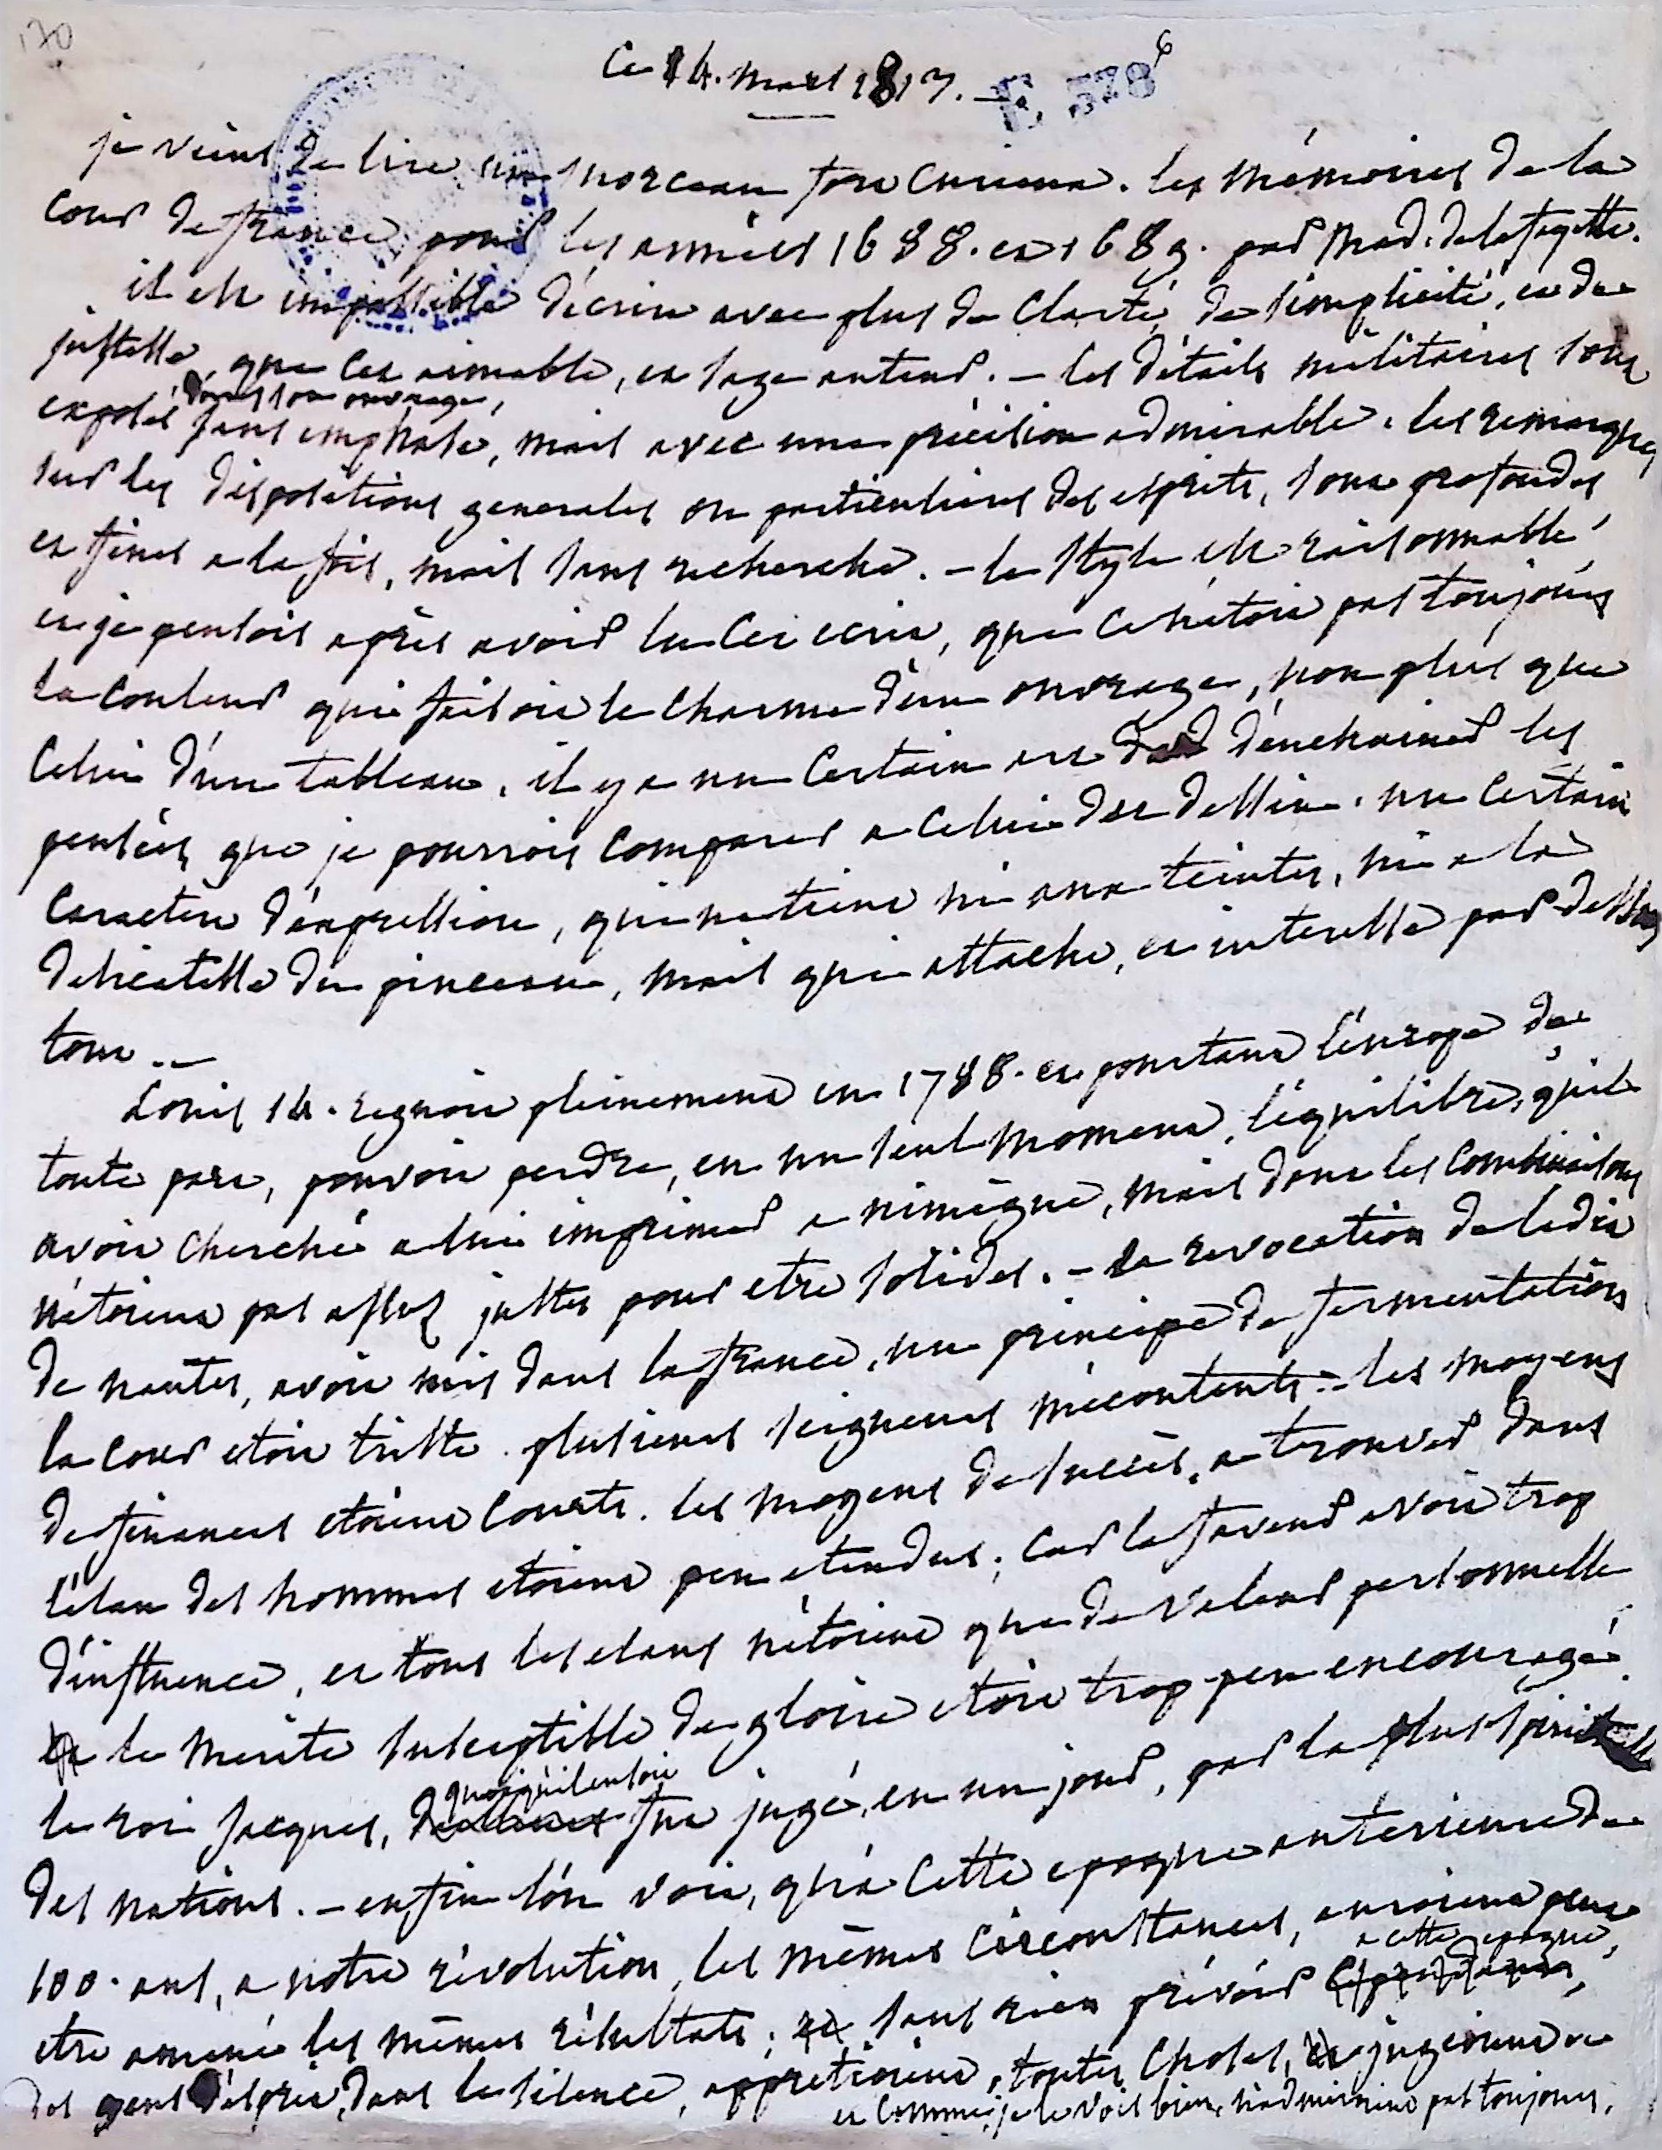 170
Ce 14. mars 1813.
E 378 6
je viens de lire un morceau fort curieux. les mémoires de la
cour de france pour les années 1688. et 1689. par Mad. de lafayette.
il est impossible d'écrire avec plus de clarté, de simplicité, et de
justesse, que cet aimable, et sage auteur. - les détails militaires sont
dans son ouvrage,
exposés sans emphase, mais avec une précision admirable. les remarques
sur les dispositions generales ou particulieres des esprits, sont profondes
et fines a la fois, mais sans recherche. - le style est raisonnable,
et je pensois après avoir lu cet ecrit, que ce n'etoit pas toujours
la couleur qui faisoit le charme d'un ouvrage, non plus que
celui d'un tableau. il y a un certain art d'enchainer les
pensées, que je pourrois comparer a celui du dessin. un certain
caractere d'expression, qui ne tient ni aux teintes, ni a la
delicatesse du pinceau, mais qui attache, et interesse par dessus
tout. -
Louis 14. regnoit pleinement en 1788. et pourtant l'europe de
toute part, pouvoit perdre, en un seul moment, l'équilibre, qu'il
avoit cherché a lui imprimer a nimègue, mais dont les combinaisons
n'étoient pas assez justes pour etre solides. - la revocation de l'edit
de nantes, avoit mis dans la france, un principe de fermentation
la cour etoit triste. plusieurs seigneurs mécontents. - les moyens
de finances etoient courts. les moyens de succès, a trouver dans
l'élan des hommes etoient peu etendus; car la faveur avoit trop
d'influence, et tous les elans n'étoient que de valeur personnelle
le merite susceptible de gloire etoit trop peu encouragé.
quoiqu'il en soit
le roi Jacques, fut jugé, en un jour, par la plus spirituelle
des nations. - enfin l'on voit, qu'a cette epoque anterieure de
100. ans, a notre révolution, les mêmes circonstances, auroient peut
a cette epoque,
etre amené les mêmes résultats; sans rien prévoir
des gens d'esprit, dans le silence, apprétioient, toutes choses, jugeoient
et comme je le vois bien, n'admiroient pas toujours.